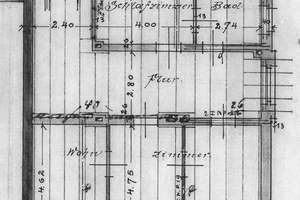 Schlafzimmer Bad
2.40 4.00 2.74
13
26
Flur
2.80
26
26
13
Wohn Zimmer
4.62 4.75